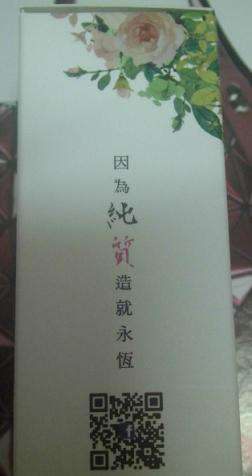 因為純質造就永恆